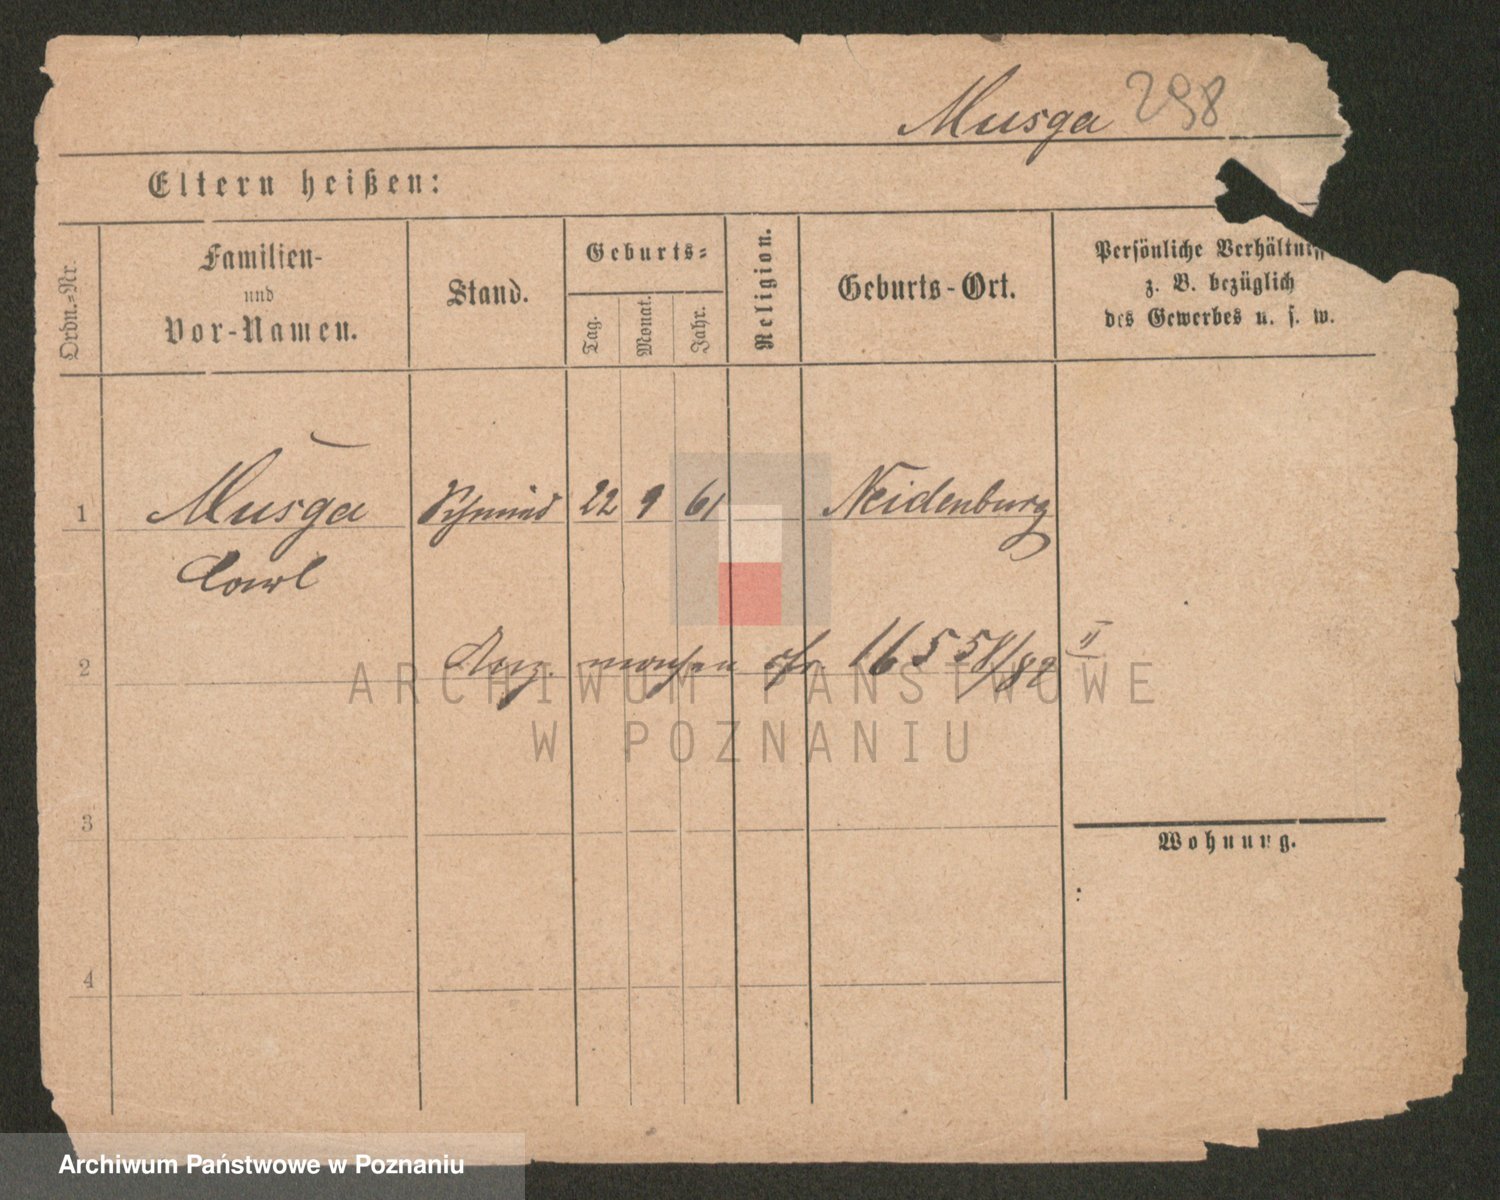 Musga 298
Eltern heißen:
Ordn.-Nr.
Familien-
und
Vor-Namen.
Stand.
Geburts-
Tag.
Monat.
Jahr.
Religion.
Geburts-Ort.
Persönliche Verhältniss
z. B. bezüglich
des Gewerbes u. s. w.
1 Musga Schmied 22 9 61 Neidenburg
Carl
2 16558/82 II
3
Wohnung.
4
ARCHIWUM PAŃSTWOWE
W POZNANIU
Archiwum Państwowe w Poznaniu